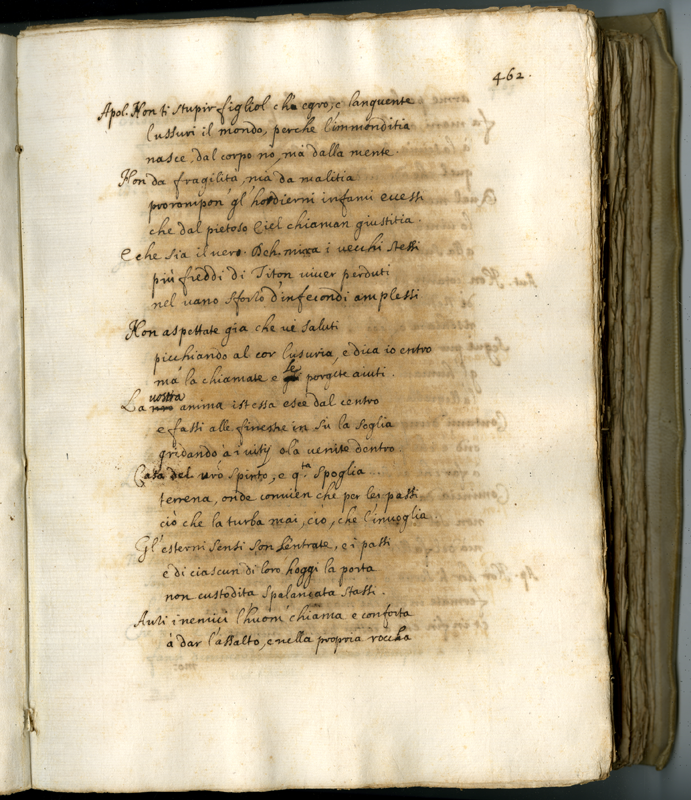 462.
Apol. Non ti stupir figliol ch'è egro, e languente
lussuri il mondo, perche l'immonditia
nasce, dal corpo nò, mà dalla mente.
Non da fragilità, mà da malitia
prorompon' gl'hodierni infami eccessi
che dal pietoso Ciel chiaman giustitia.
E che sia il uero. Deh mira i uecchi stessi
più freddi di Titon uiuer perduti
nel uano sforzo d'infecondi amplessi
Non aspettate già che uè saluti
picchiando al cor lusuria, e dica io entro
mà la chiamate e le porgete aiuti.
La uostra anima istessa esce dal centro
e fassi alle finestre in sù la soglia
gridando à i uitij olà uenite dentro.
Casa del uro spirto, e q.ta spoglia
terrena, onde conuien che per lei passi
ciò che la turba mai, ciò, che l'inuoglia.
Gl'esterni sensi son l'entrate, e i passi
e di ciascun di loro hoggi la porta
non custodita spalancata stassi.
Auti i nemici l'huom' chiama e conforta
à dar l'assalto, e nella propria roccha